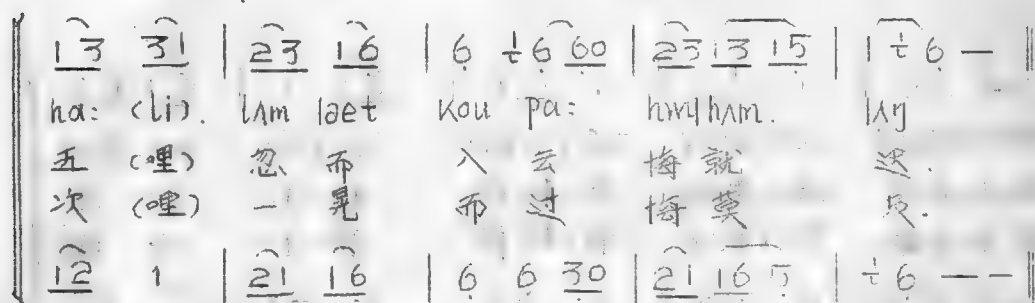 1 3 3 1 | 2 3 1 6 | 6 1 6 6 0 | 2 3 1 3 1 5 | 1 1 6 — ‖
ha: (li). lʌm laet kou pa: hʌm. lʌŋ
五 (哩) 忽 而 入 云 悔 就 迟.
次 (哩) 一 晃 而 过 悔 莫 及.
1 2 1 | 2 1 1 6 | 6 6 3 0 | 2 1 1 6 5 | 1 6 — — ‖